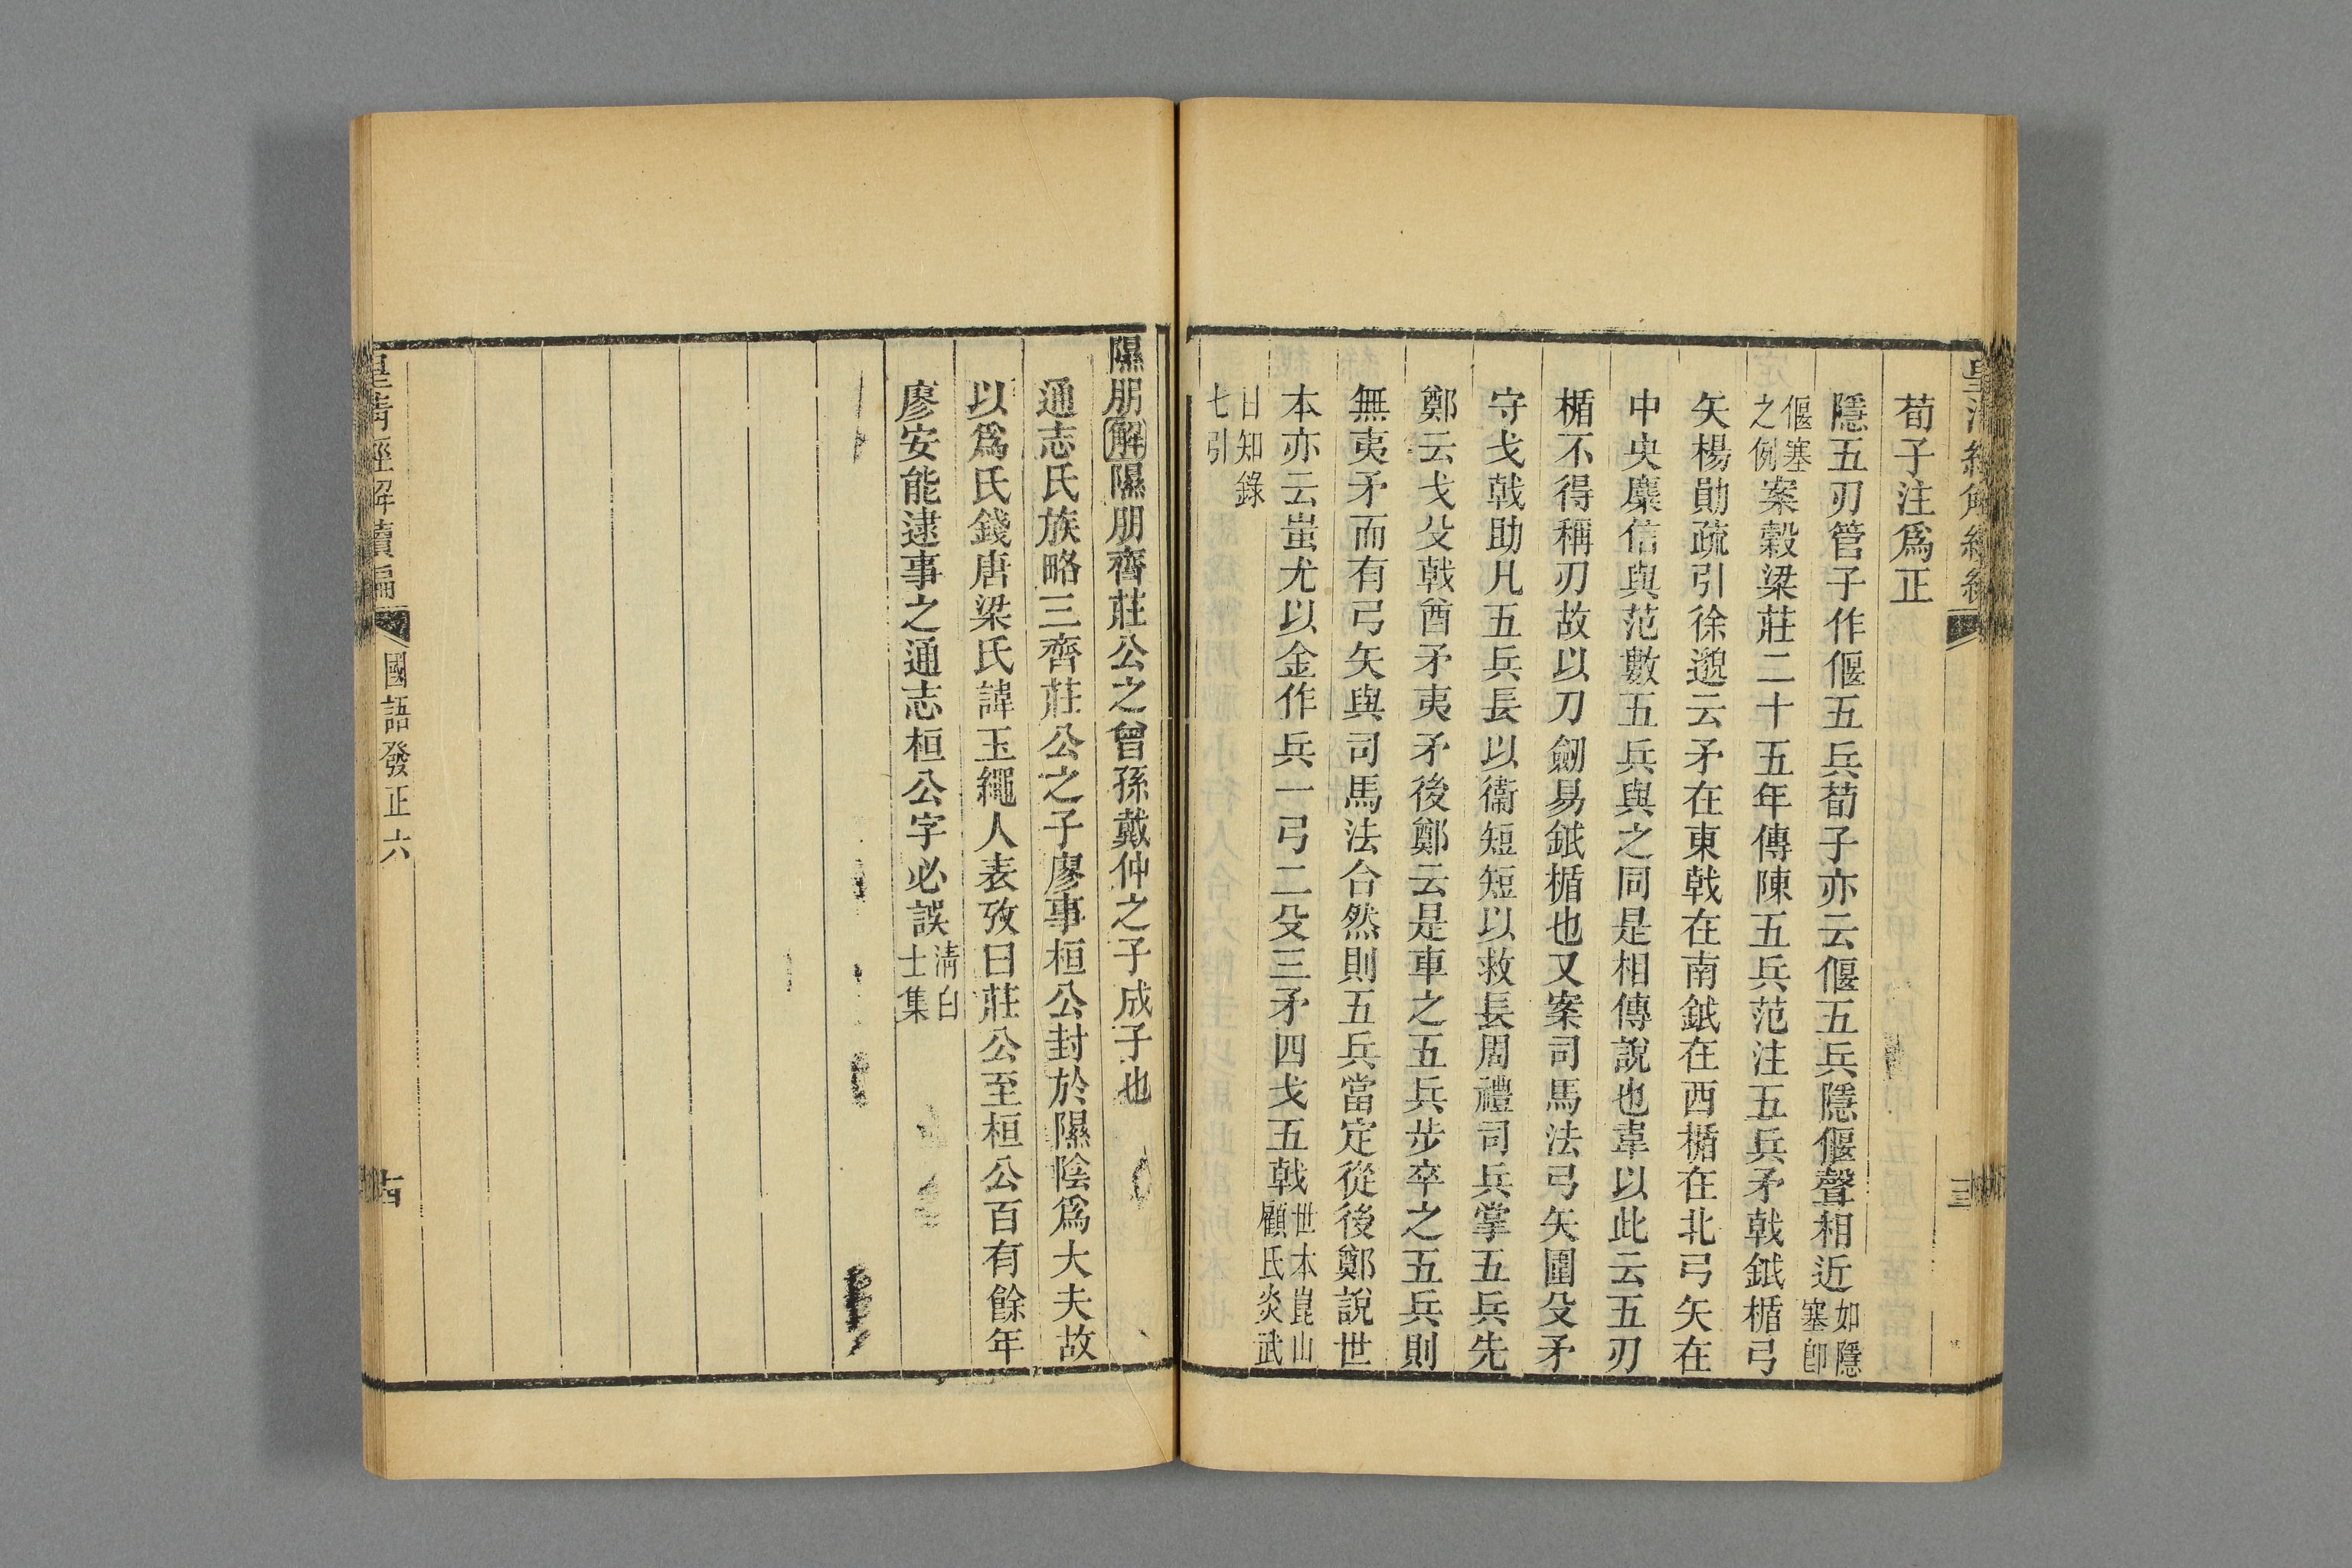 荀子注爲正
隱五刃管子作偃五兵荀子亦云偃五兵隱偃聲相近如隱塞卽
偃塞之例案穀梁莊二十五年傳陳五兵范注五兵矛戟鉞楯弓
矢楊勛疏引徐邈云矛在東戟在南鉞在西楯在北弓矢在
中央麋信與范數五兵與之同是相傳說也韋以此云五刃
楯不得稱刃故以刀劒易鉞楯也又案司馬法弓矢圍殳矛
守戈戟助凡五兵長以衞短短以救長周禮司兵掌五兵先
鄭云戈殳戟酋矛夷矛後鄭云是車之五兵步卒之五兵則
無夷矛而有弓矢與司馬法合然則五兵當定從後鄭說世
本亦云蚩尤以金作兵一弓二殳三矛四戈五戟世本崑山顧氏炎武
日知錄七引
隰朋解隰朋齊莊公之曾孫戴仲之子成子也
通志氏族略三齊莊公之子廖事桓公封於隰陰爲大夫故
以爲氏錢唐梁氏諱玉繩人表攷曰莊公至桓公百有餘年
廖安能逮事之通志桓公字必誤淸白士集
皇淸經解續編
國語發正六